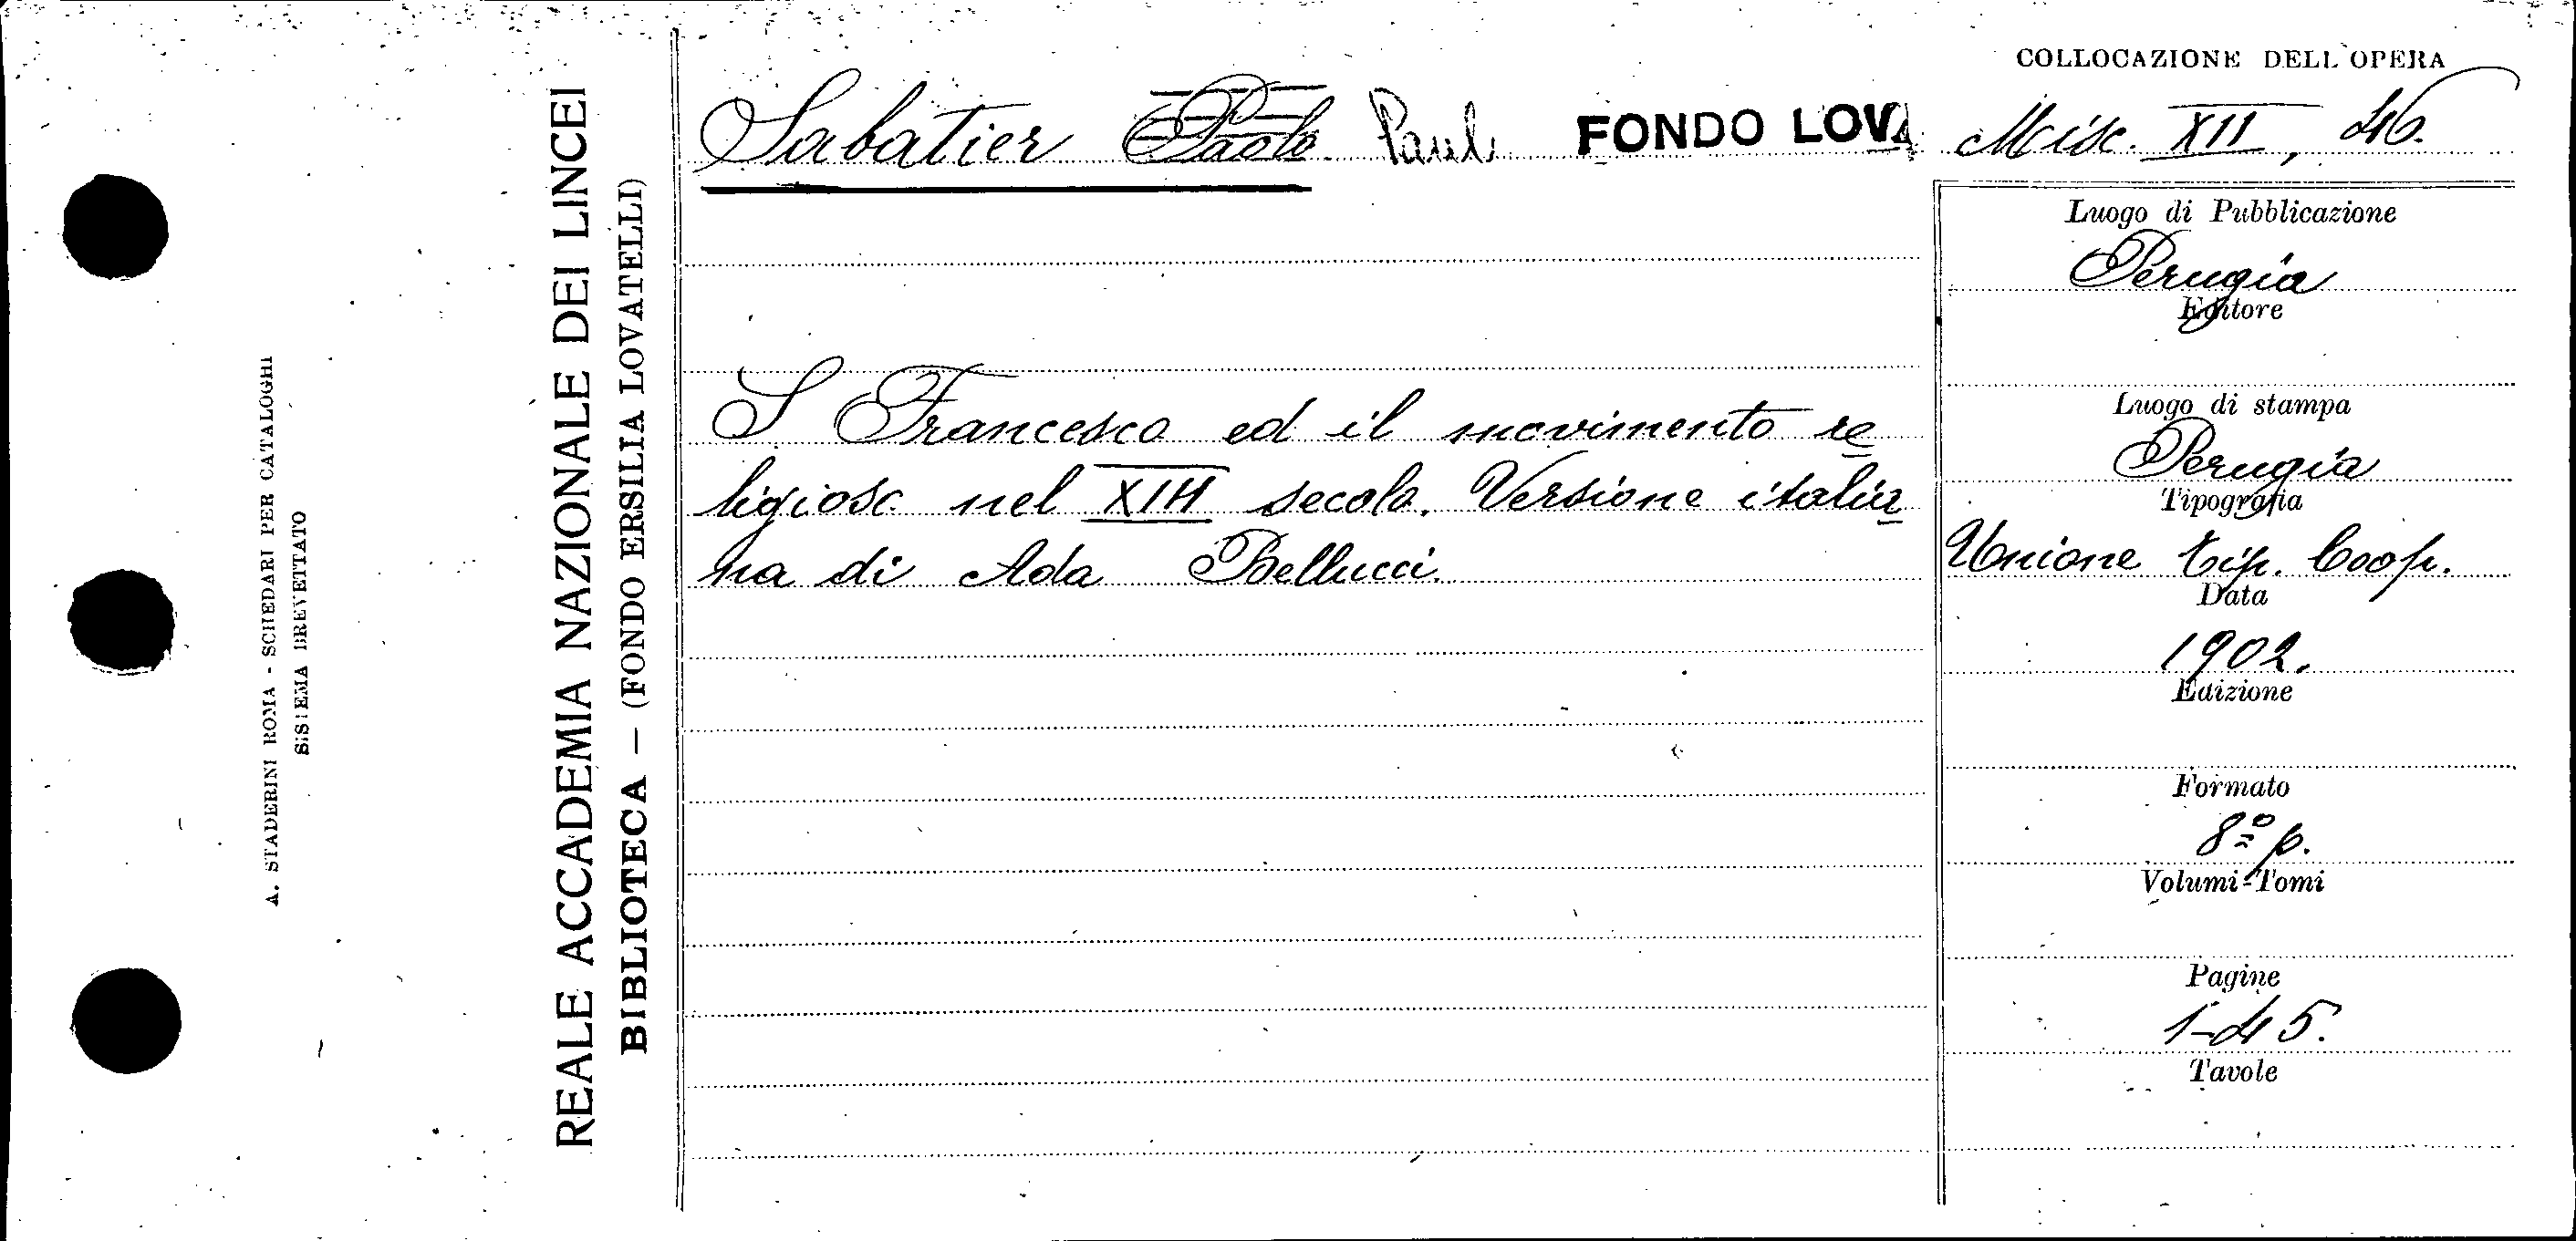 A. STADERINI ROMA - SCHEDARI PER CATALOGHI
SISTEMA BREVETTATO
REALE ACCADEMIA NAZIONALE DEI LINCEI
BIBLIOTECA — (FONDO ERSILIA LOVATELLI)
COLLOCAZIONE DELL'OPERA
Sabatier Paolo Paul FONDO LOVA Misc. XII, 46.
S Francesco ed il movimento re
ligioso nel XIII secolo. Versione italia
na di Ada Bellucci.
Luogo di Pubblicazione
Perugia
Editore
Luogo di stampa
Perugia
Tipografia
Unione tip. Coop.
Data
1902.
Edizione
Formato
8º p.
Volumi-Tomi
Pagine
1-45.
Tavole